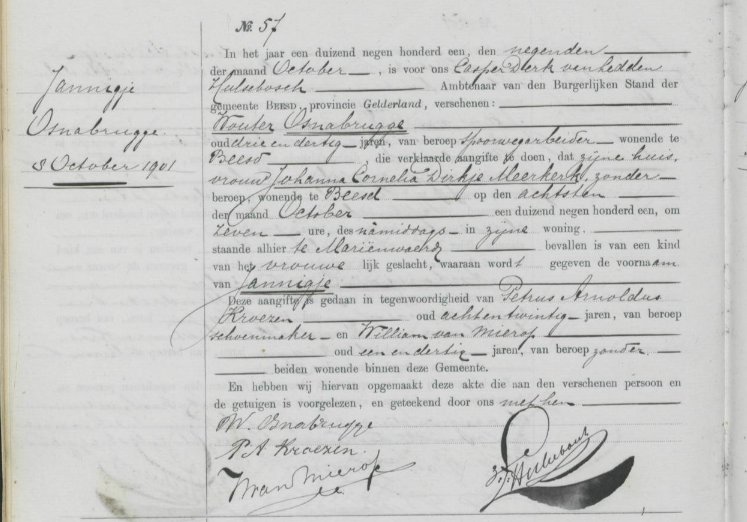 No. 57
Jannigje
Osnabrugge
8 October 1901
In het jaar een duizend negen honderd een, den negenden
der maand October, is voor ons Casper Dierk van hedden
Hulsebosch Ambtenaar van den Burgerlijken Stand der
gemeente BEESD, provincie Gelderland, verschenen:
Wouter Osnabrugge
oud drie en dertig jaren, van beroep spoorwegarbeider wonende te
Beesd, die verklaarde aangifte te doen, dat zijne huis,
vrouw Johanna Cornelia Dirkje Meerkerk, zonder
beroep, wonende te Beesd op den achtsten
der maand October een duizend negen honderd een, om
zeven ure, des namiddags in zijne woning
staande alhier te Mariënwaerd bevallen is van een kind
van het vrouwe lijk geslacht, waaraan wordt gegeven de voornaam
van Jannigje
Deze aangifte is gedaan in tegenwoordigheid van Petrus Arnoldus
Kroezen oud achtentwintig jaren, van beroep
schoenmaker en William van Mierop
oud een en dertig jaren, van beroep zonder
beiden wonende binnen deze Gemeente.
En hebben wij hiervan opgemaakt deze akte die aan den verschenen persoon en
de getuigen is voorgelezen, en geteekend door ons met hen
W. Osnabrugge
P A Kroezen.
W van Mierop